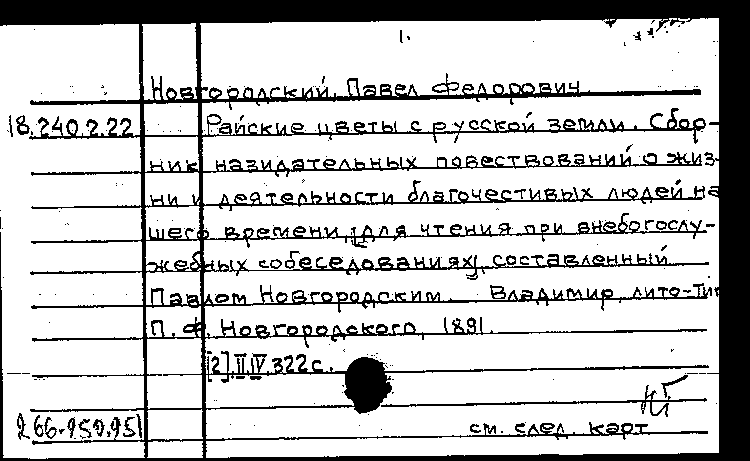 1.
Новгородский, Павел Федорович
18.240.2.22 Райские цветы с русской земли. Сбор-
ник назидательных повествований о жиз-
ни и деятельности благочестивых людей на
шего времени, (для чтения при внебогослу-
жебных собеседованиях), составленный
Павлом Новгородским. Владимир, лито-тип
П. Ф. Новгородского, 1891.
[2].II.IV.322 с.
см. след. карт